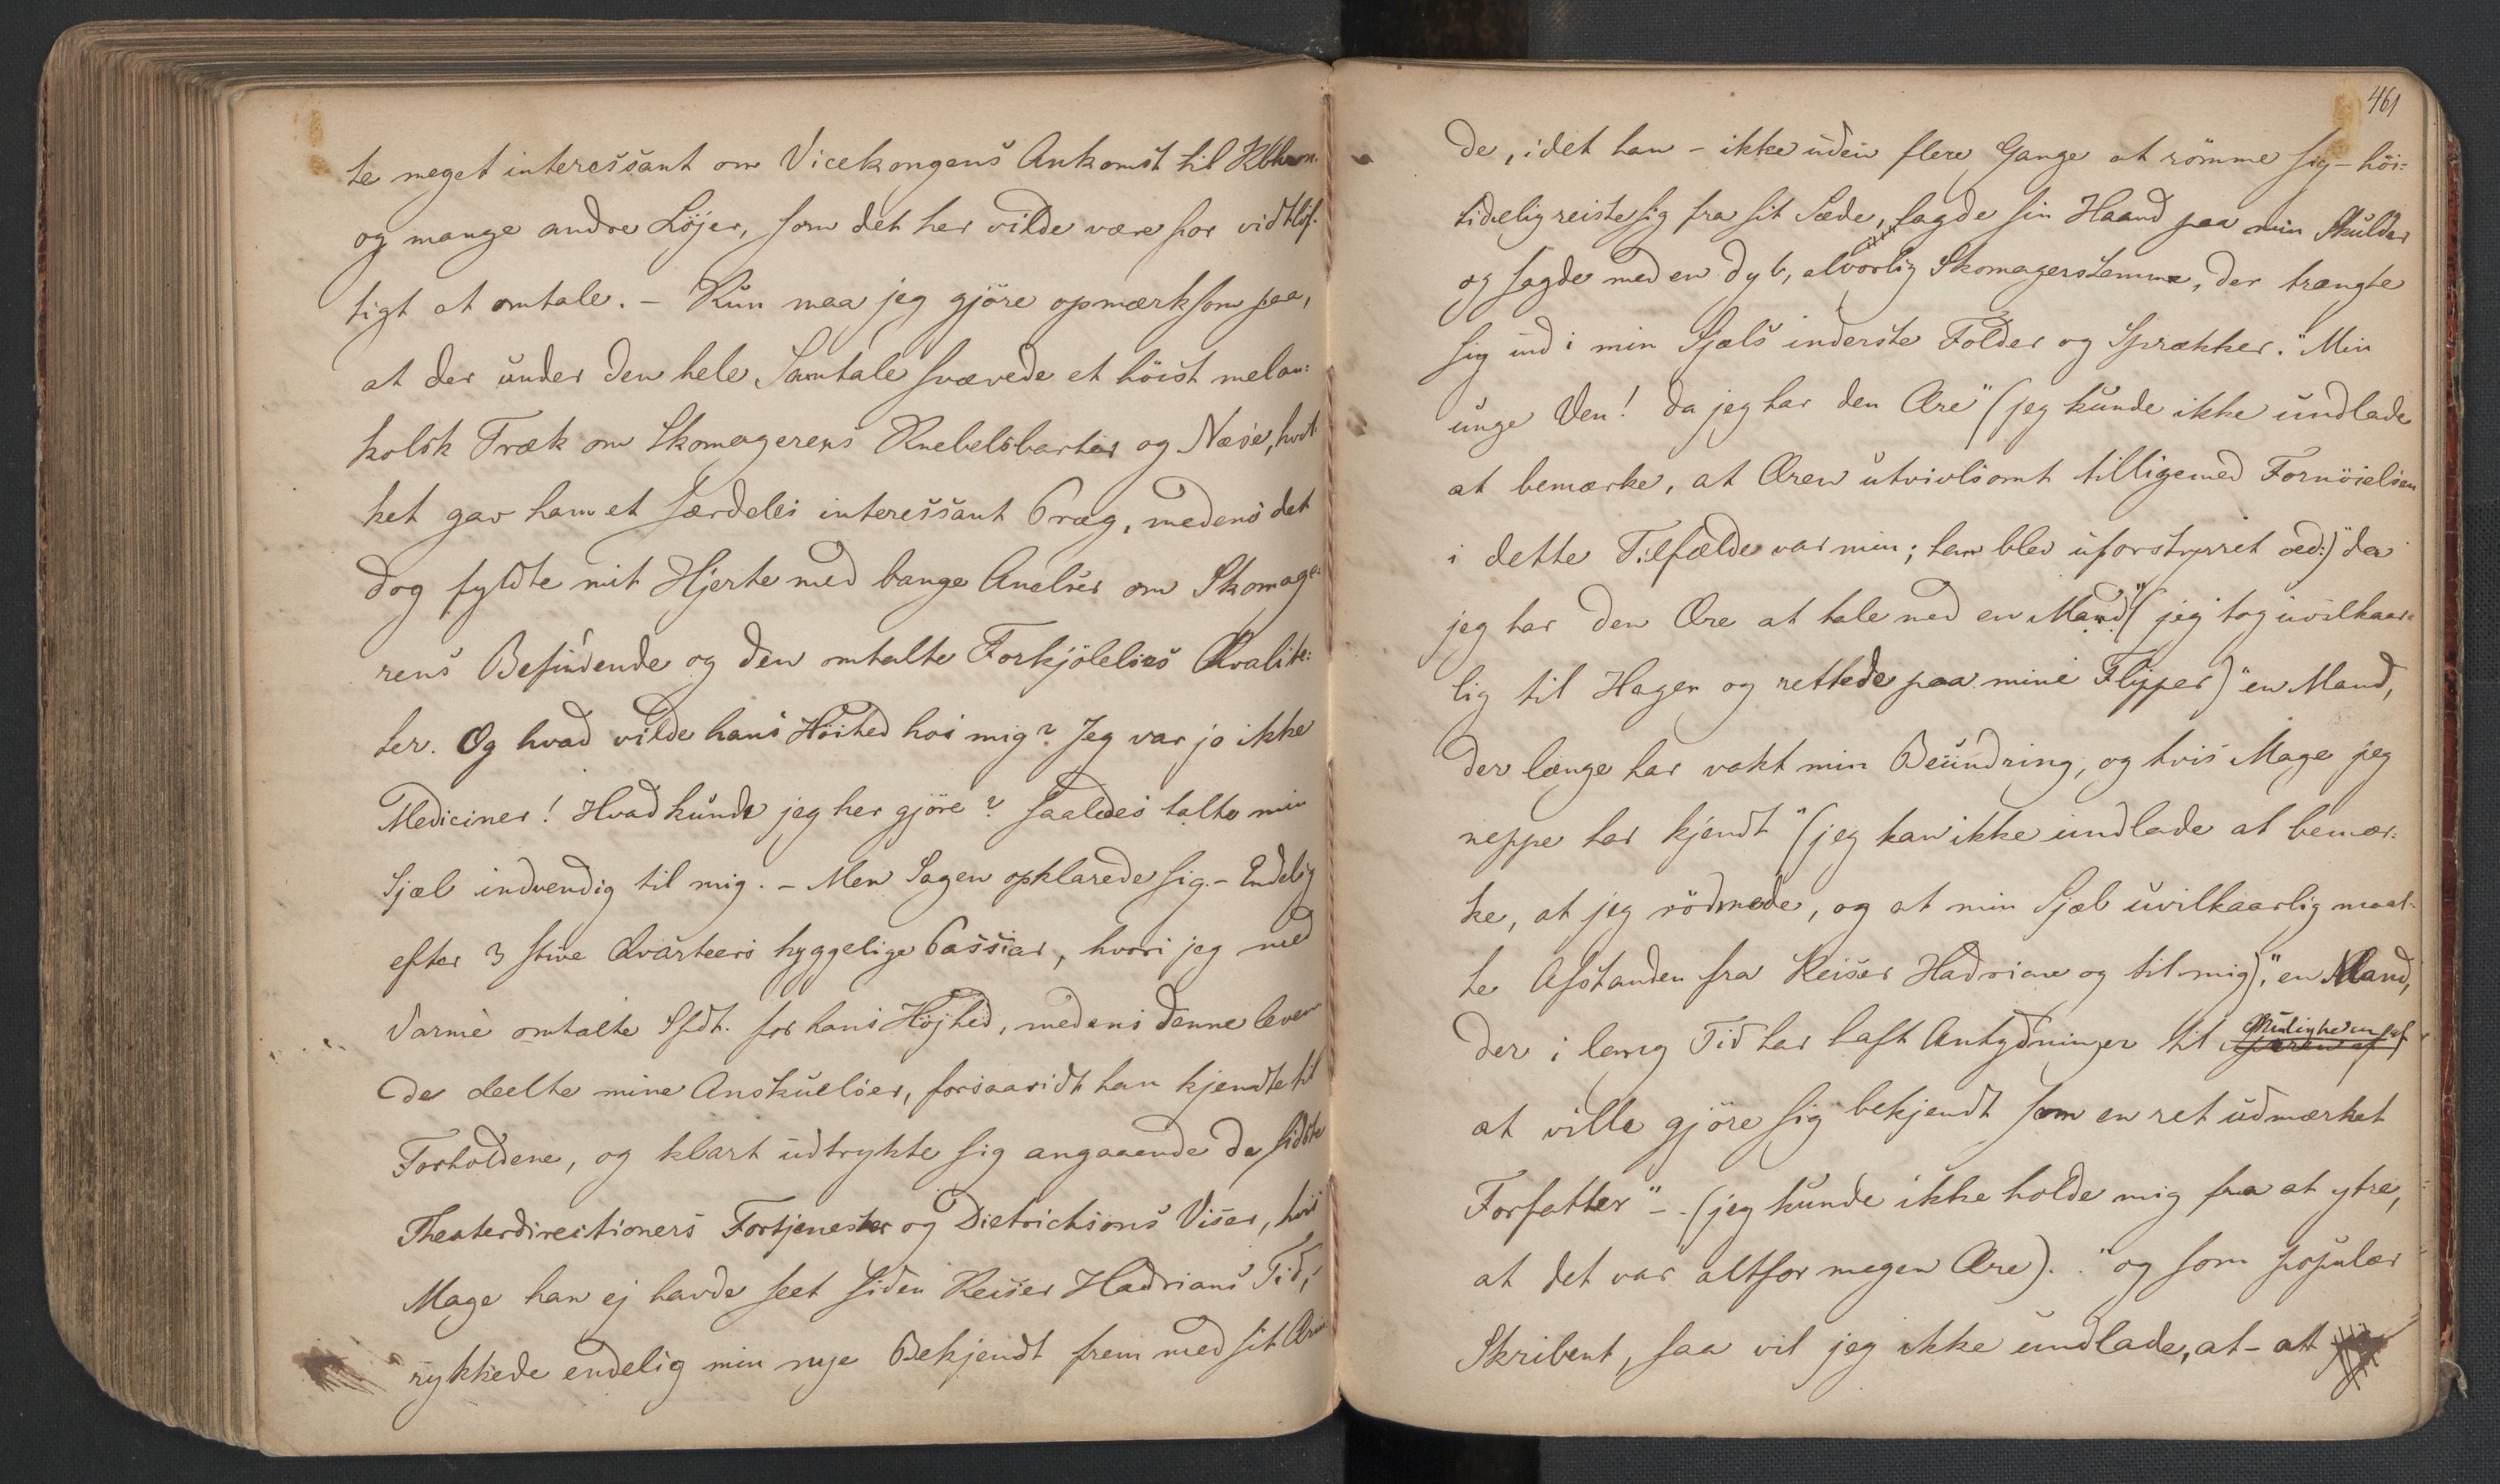 te meget interessant om Vicekongens Ankomst til Kbhvn.
og mange andre Löjer, som det her vilde være for vidtlöf-
tigt at omtale. – Kun maa jeg gjöre opmærksom paa,
at der under den hele Samtale svævede et höist melan=
kolsk Træk om Skomagerens Knebelsbarter og Næse, hvil
ket gav ham et særdeles interessant Præg, medens det
dog fyldte mit Hjerte med bange Anelser om Skomage=
rens Befindende og den omtalte Forkjölelses Qvalite=
ter. Og hvad vilde hans Höihed hos mig? Jeg var jo ikke
Mediciner! Hvad kunde jeg her gjöre? Saaledes talte min
Sjæl indvendig til mig. – Men Sagen opklarede sig. – Endelig
efter 3 stive Qvarteers hyggelige Passiar, hvori jeg med
Varme omtalte Sfdt. for hans Höjhed, medens denne leven
de deelte mine Anskuelser, forsaavidt han kjendte til
Forholdene, og klart udtrykte sig angaaende de sidste
Theaterdirectioners Fortjenester og Dietrichsons Viser, hvis
Mage han ej havde seet siden Keiser Hadrians Tid,
rykkede endelig min nye Bekjendt frem med sit Ærin
461
de, idet han – ikke uden flere Gange at römme sig – höi=
tidelig reiste sig fra sit Sæde, lagde sin Haand paa min Skulder
og sagde med en dyb, alvorlig Skomagerstemme, der trængte
sig ind i min Sjæls inderste Folder og Sprækker. "Min
unge Ven! da jeg har den Ære" (jeg kunde ikke undlade
at bemærke, at Æren utvivlsomt tilligemed Fornöielsen
i dette Tilfælde var min; han blev uforstyrret ved:) "da
jeg har den Ære at tale med en Mand" (jeg tog uvilkaar=
lig til Hagen og rettede paa mine Flipper) "en Mand,
der længe har vakt min Beundring, og hvis Mage jeg
neppe har kjendt" (jeg kan ikke undlade at bemær=
ke, at jeg rödmede, og at min Sjæl uvilkaarlig maal=
te Afstanden fra Keiser Hadrian og til mig), "en Mand,
der i lang Tid har havt Antydninger til Muligheden af
at ville gjöre sig bekjendt som en ret udmærket
Forfatter" – (jeg kunde ikke holde mig fra at ytre,
at det var altfor megen Ære). "og som populær
Skribent, saa vil jeg ikke undlade, at – at